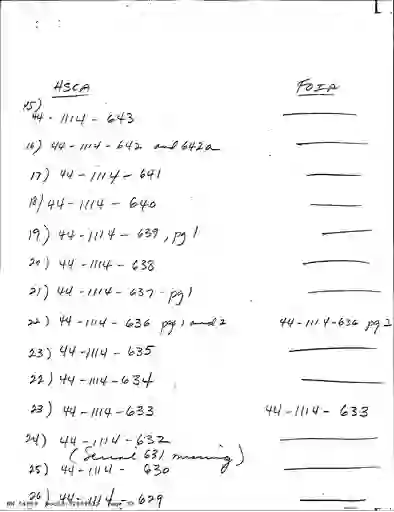 HSCA FOIA
15)
44-1114-643
16) 44-1114-642 and 642a
17) 44-1114-641
18) 44-1114-640
19) 44-1114-639, pg 1
20) 44-1114-638
21) 44-1114-637-pg 1
22) 44-1114-636 pg 1 and 2 44-1114-636 pg 2
23) 44-1114-635
22) 44-1114-634
23) 44-1114-633 44-1114-633
24) 44-1114-632
(Serial 631 missing)
25) 44-1114-630
26) 44-1114-629